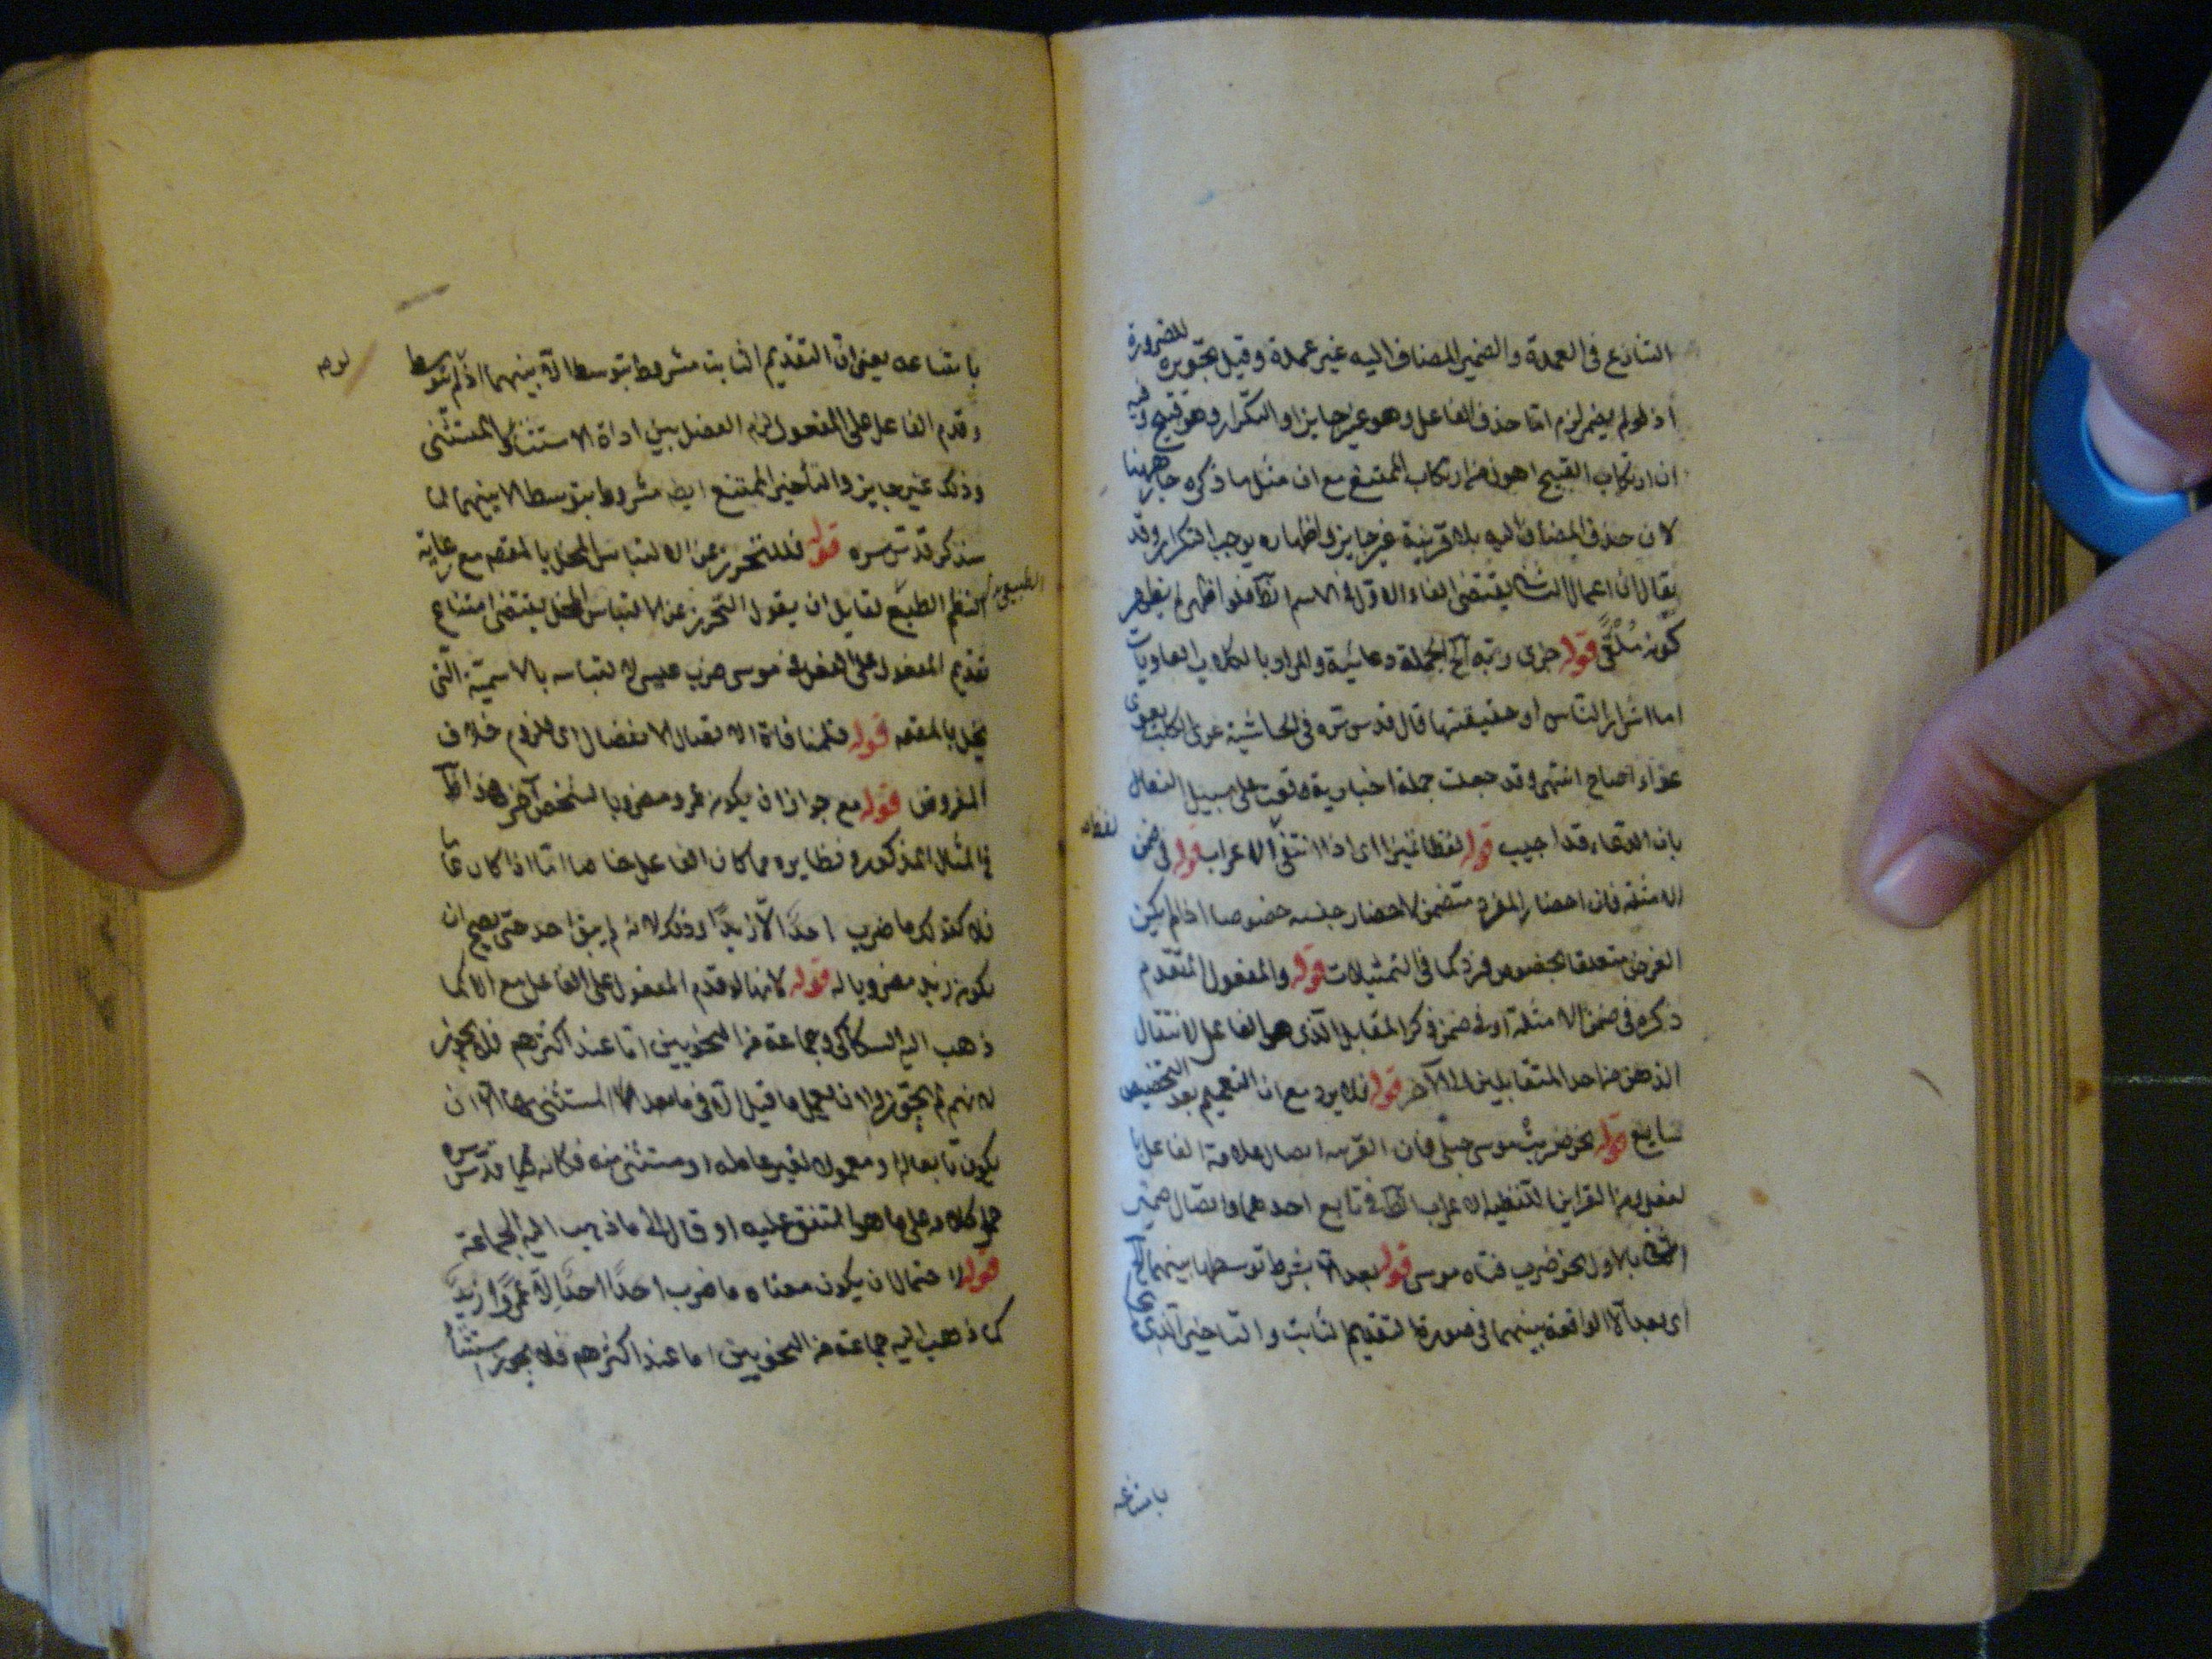 التنازع فى العمدة والضمير المضاف اليه غير عمدة وقيل بتجويزه للضرورة
اذ لو لم يضمر لزم اما حذف الفاعل وهو غير جايز او التكرار وهو قبيح وفيه
ان ارتكاب القبيح اهون من ارتكاب الممتنع مع ان مثل ما ذكره جار ههنا
لان حذف المضاف اليه بلا قرينة غير جايز واظهاره يوجب التكرار وقد
يقال ان اعمال الثانى يقتضى الغاء الاول فى الاسم الظاهر فلو اظهر لم يظهر
كونه ملقى قوله جزى ربه الخ الجملة دعائية والمراد بالكلاب العاويات
اما اشرار الناس او حقيقتها قال قدس سره فى الحاشية عوى الكلب يعوى
عواء اصاح انتهى وقد جعلت جملة اخبارية وقعت على سبيل التفال
بان الدعاء قد اجيب قوله لفظا تميز اى اذا انتفى الاعراب قوله فى ضمن
الامثلة فان احضار المفرد متضمن لاحضار جنسه خصوصا اذا لم يكن
الغرض متعلقا بخصوص فرد كما فى التمثيلات قوله والمفعول المتقدم
ذكره فى ضمن الامثلة او فى ضمن ذكر المقابل الذى هو الفاعل لانتقال
الذهن من احد المتقابلين الى الآخر قوله فلا يرد مع ان التعميم بعد التخصيص
شايع قوله نحو ضربت موسى حبلى فان القرينة اتصال علامة الفاعل با
لفعل ومن القراين اللفظية الاعراب الظ فى تابع احدهما واتصال ضمير
الثانى بالاول نحو ضرب فتاه موسى قوله بعد الا بشرط توسطها بينهما الخ
اى بعد الا الواقعة بينهما فى صورة التقديم الثابت والتاخير الذى
لفظا
بامتناعه
بامتناعه يعنى ان التقديم الثابت مشروط بتوسط الا بينهما اذ لم توسط
وقدم الفاعل على المفعول لزم الفصل بين اداة الاستثناء والمستثنى
وذلك غير جايز والتأخير الممتنع ايضا مشروط بتوسط الا بينهما لما
سنذكر قدس سره قوله فللتحرز عن الالتباس المخل بالمقصم مع رعاية
النظم الطبيعى لقايل ان يقول التحرز عن الالتباس المخل يقتضى امتناع
تقديم المفعول على الفعل فى موسى ضرب عيسى لالتباسه بالاسمية التى
يخل بالمقصد قوله فلمنافاة الاتصال الانفصال اى فلزوم خلاف
المفروض قوله مع جواز ان يكون عمرو مضروبا لشخص آخر هذا ظاهر
فى المثال المذكور ونظايره مما كان الفاعل خاصا اما اذا كان عاما
فلا كقولك ما ضرب احدا الا زيدا وذلك لانه لم يبق احد حتى يصح ان
يكون زيد مضروبا له قوله لانها لو قدم المفعول على الفاعل مع الا كما
ذهب اليه السكاكى وجماعة من النحويين اما عند اكثرهم فلا يجوز
لانهم لم يجوزوا ان يعمل ما قيل الا فى ما بعد المستثنى بها الا ان
يكون تابعا له او معمولا لغير عامله او مستثنى منه فكانه قدس سره
حمل كلامه على ما هو المتفق عليه او قال الى ما ذهب اليه الجماعة
قوله لاحتمال ان يكون معناه ما ضرب احدا احدا الا عمروا زيد
كما ذهب اليه جماعة من النحويين اما عند اكثرهم فلا يجوز استثناء
الطبيعى